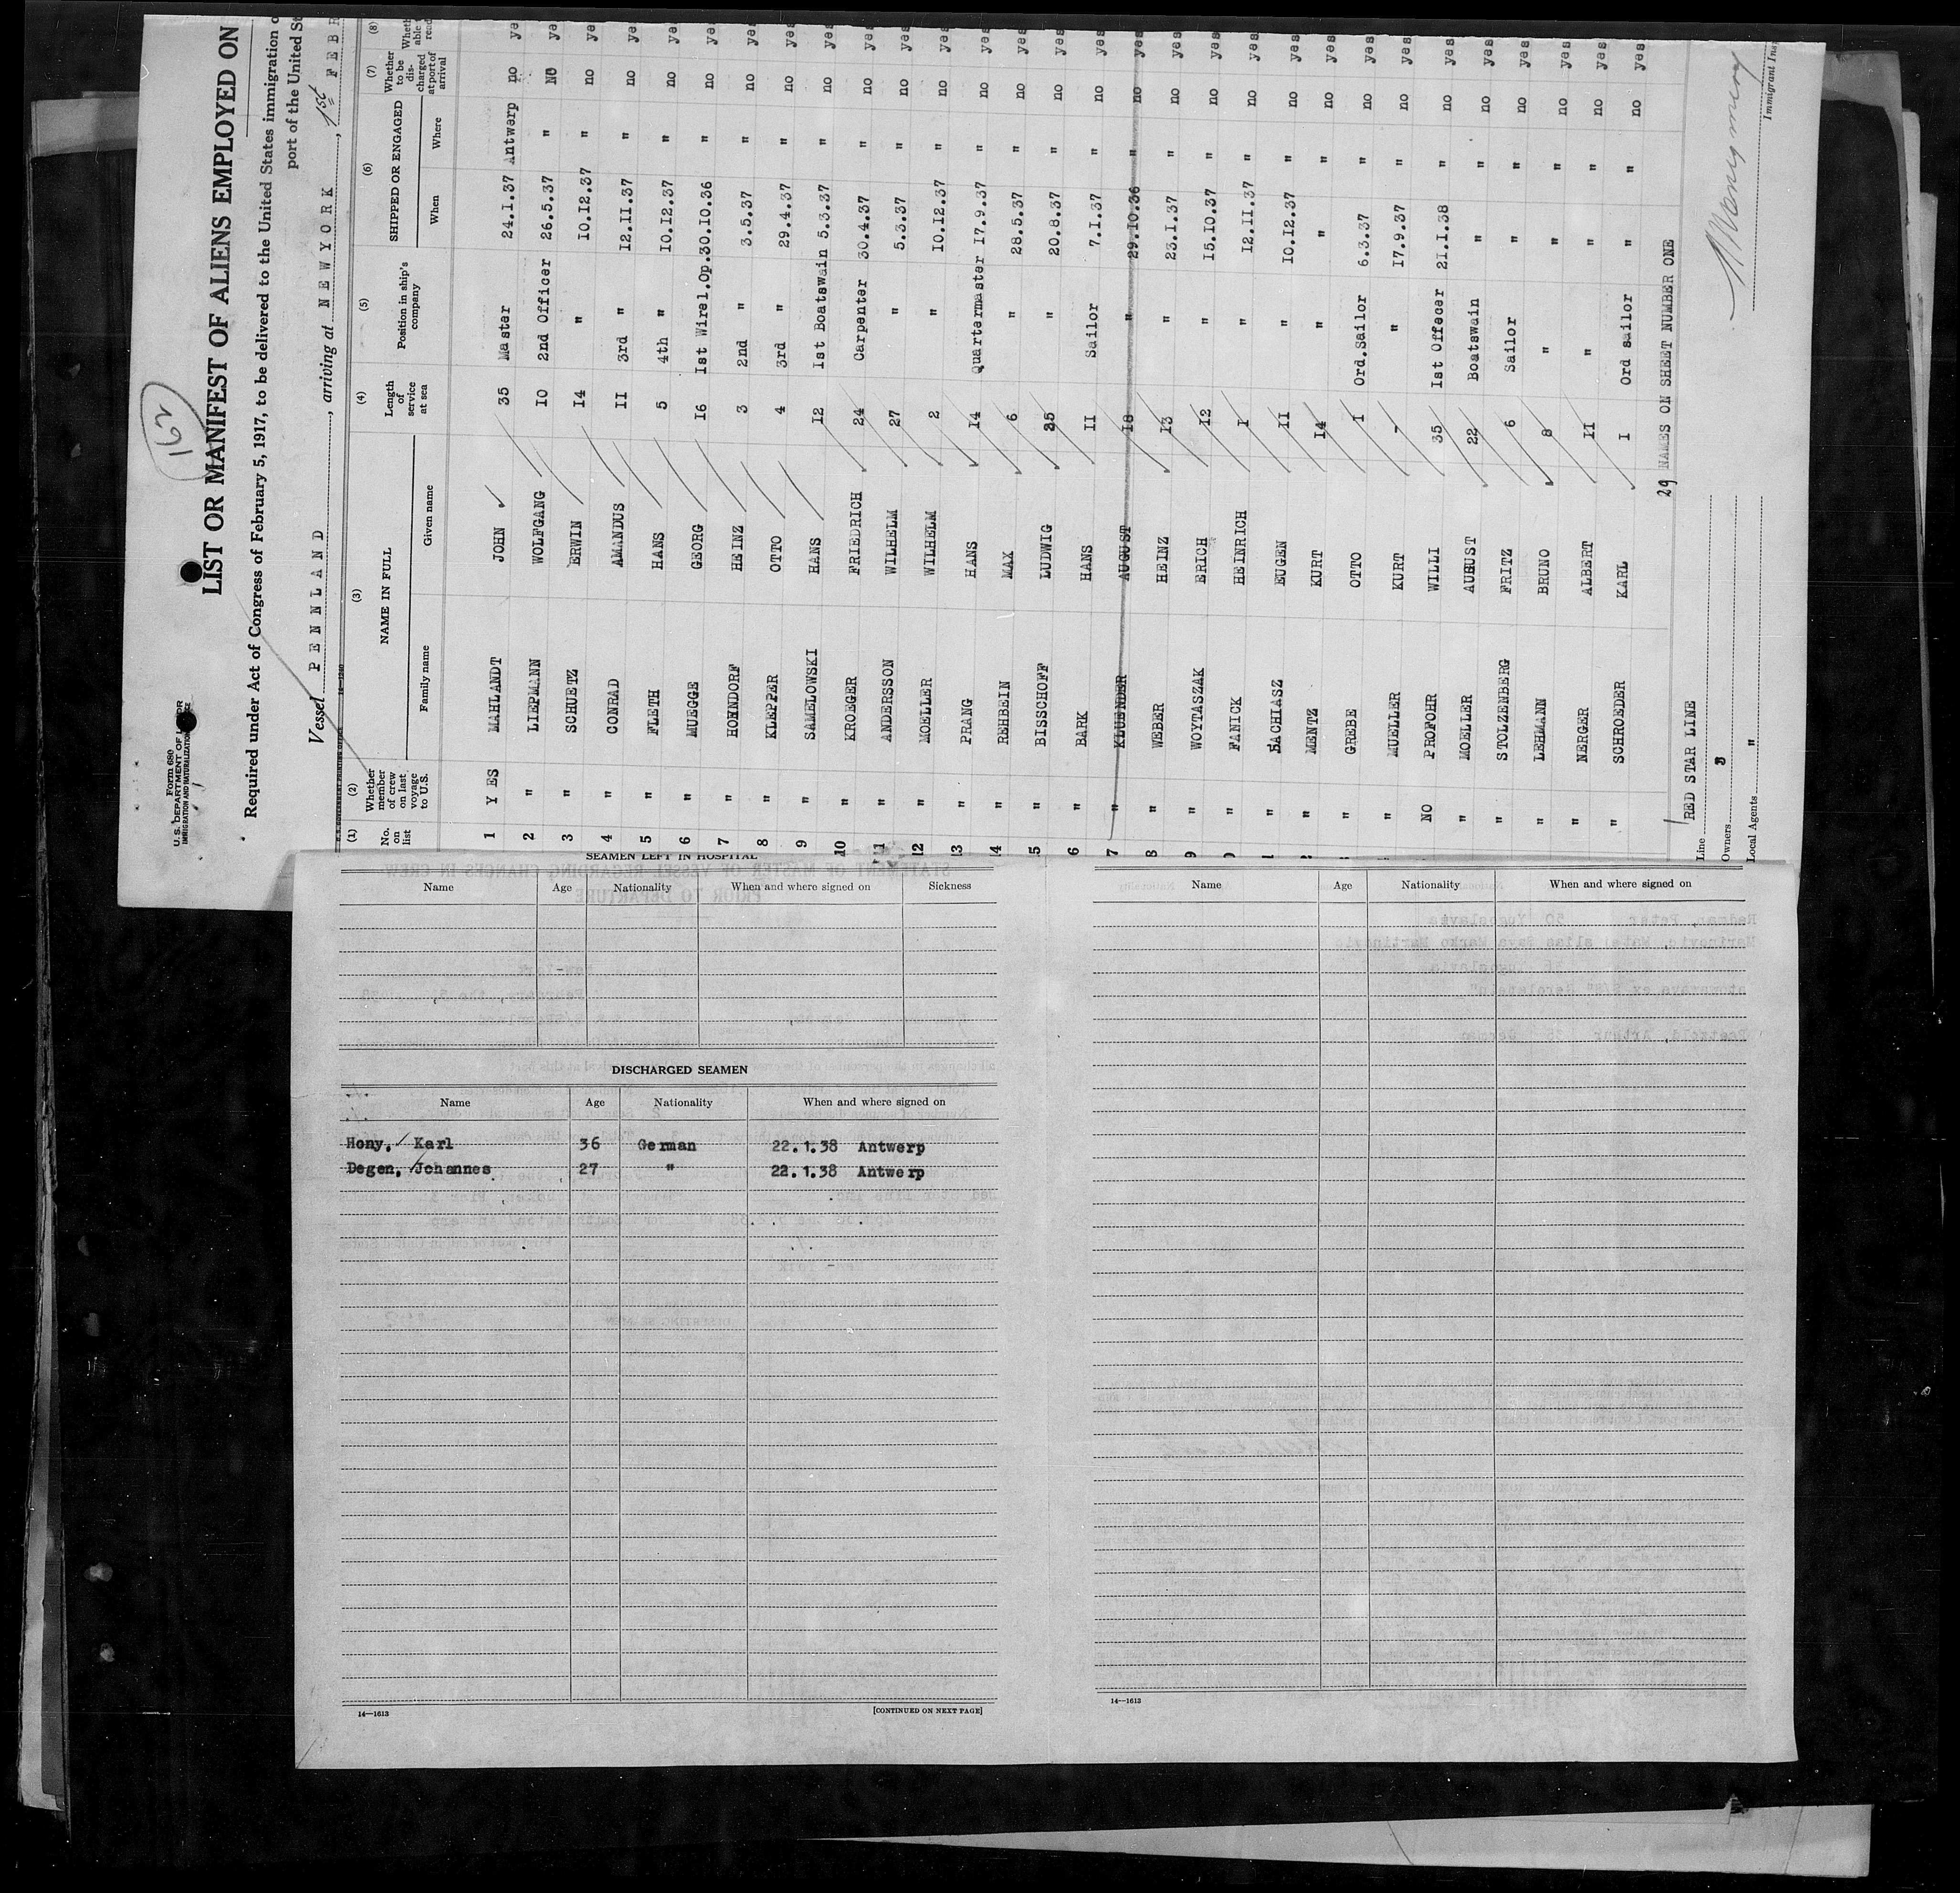 162
Form 680
U.S. DEPARTMENT OF LABOR
IMMIGRATION AND NATURALIZATION SERVICE
LIST OR MANIFEST OF ALIENS EMPLOYED ON
Required under Act of Congress of February 5, 1917, to be delivered to the United States immigration
port of the United St
Vessel PENNLAND, arriving at NEWYORK, 1st FEBR
(1) No. on list (2) Whether member of crew on last voyage to U.S. (3) NAME IN FULL Family name Given name (4) Length of service at sea (5) Position in ship's company (6) SHIPPED OR ENGAGED When Where (7) Whether to be discharged at port of arrival (8)
1 YES MAHLANDT JOHN 35 Master 24.1.37 Antwerp no yes
2 " LIEPMANN WOLFGANG 10 2nd Officer 26.5.37 " NO yes
3 " SCHUETZ ERWIN 14 " 10.12.37 " no yes
4 " CONRAD AMANDUS 11 3rd " 12.11.37 " no yes
5 " FLETH HANS 5 4th " 10.12.37 " no yes
6 " MUEGGE GEORG 16 1st Wirel.Op. 30.10.36 " no yes
7 " HOHNDORF HEINZ 3 2nd " 3.5.37 " no yes
8 " KLEPPER OTTO 4 3rd " 29.4.37 " no yes
9 " SAMELOWSKI HANS 12 1st Boatswain 5.3.37 " no yes
10 " KROEGER FRIEDRICH 24 Carpenter 30.4.37 " no yes
11 " ANDERSSON WILHELM 27 " 5.3.37 " no yes
12 " MOELLER WILHELM 2 " 10.12.37 " no yes
13 " PRANG HANS 14 Quartermaster 17.9.37 " no yes
4 " REHBEIN MAX 6 " 28.5.37 " no yes
5 " BISSCHOFF LUDWIG 35 " 20.8.37 " no yes
6 " BARK HANS 11 Sailor 7.1.37 " no yes
7 " KLUENDER AUGUST 18 " 29.10.36 " no yes
8 " WEBER HEINZ 13 " 23.1.37 " no yes
9 " WOYTASZAK ERICH 12 " 15.10.37 " no yes
0 " FANICK HEINRICH 1 " 12.11.37 " no yes
1 " BACHIASZ EUGEN 11 " 10.12.37 " no yes
" MENTZ KURT 14 " " " no yes
" GREBE OTTO 1 Ord.Sailor 6.3.37 " no yes
" MUELLER KURT - " 17.9.37 " no yes
NO PROFOHR WILLI 35 1st Offecer 21.1.38 " no yes
" MOELLER AUGUST 22 Boatswain " " no yes
" STOLZENBERG FRITZ 6 Sailor " " no yes
" LEHMANN BRUNO 8 " " " no yes
" NERGER ALBERT 11 " " " no yes
" SCHROEDER KARL 1 Ord sailor " " no yes
29 NAMES ON SHEET NUMBER ONE
Line RED STAR LINE
Owners "
Local Agents "
Immigrant Ins
SEAMEN LEFT IN HOSPITAL
Name Age Nationality When and where signed on Sickness
DISCHARGED SEAMEN
Name Age Nationality When and where signed on
Hony, Karl 36 German 22.1.38 Antwerp
Degen, Johannes 27 " 22.1.38 Antwerp
14—1613 [CONTINUED ON NEXT PAGE]
Name Age Nationality When and where signed on
14—1613